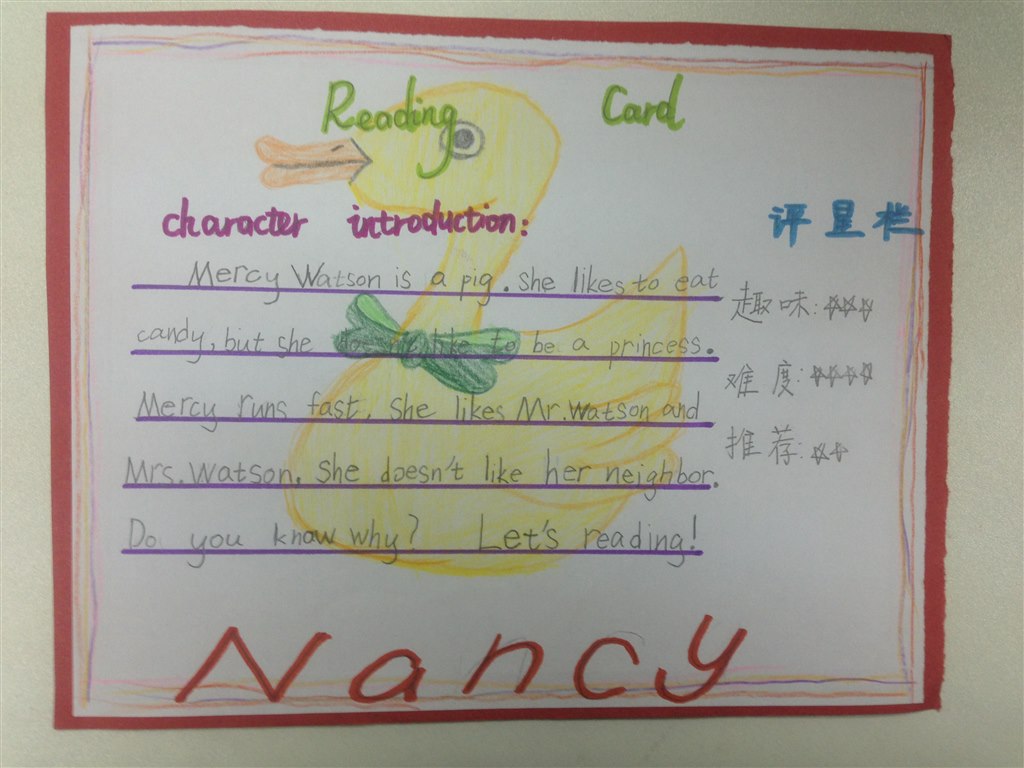 Reading Card
character introduction:
评星栏
Mercy Watson is a pig. She likes to eat
candy, but she doesn't like to be a princess.
Mercy runs fast. She likes Mr. Watson and
Mrs. Watson. She doesn't like her neighbor.
Do you know why? Let's reading!
趣味: ☆☆☆
难度: ☆☆☆☆
推荐: ☆☆
Nancy